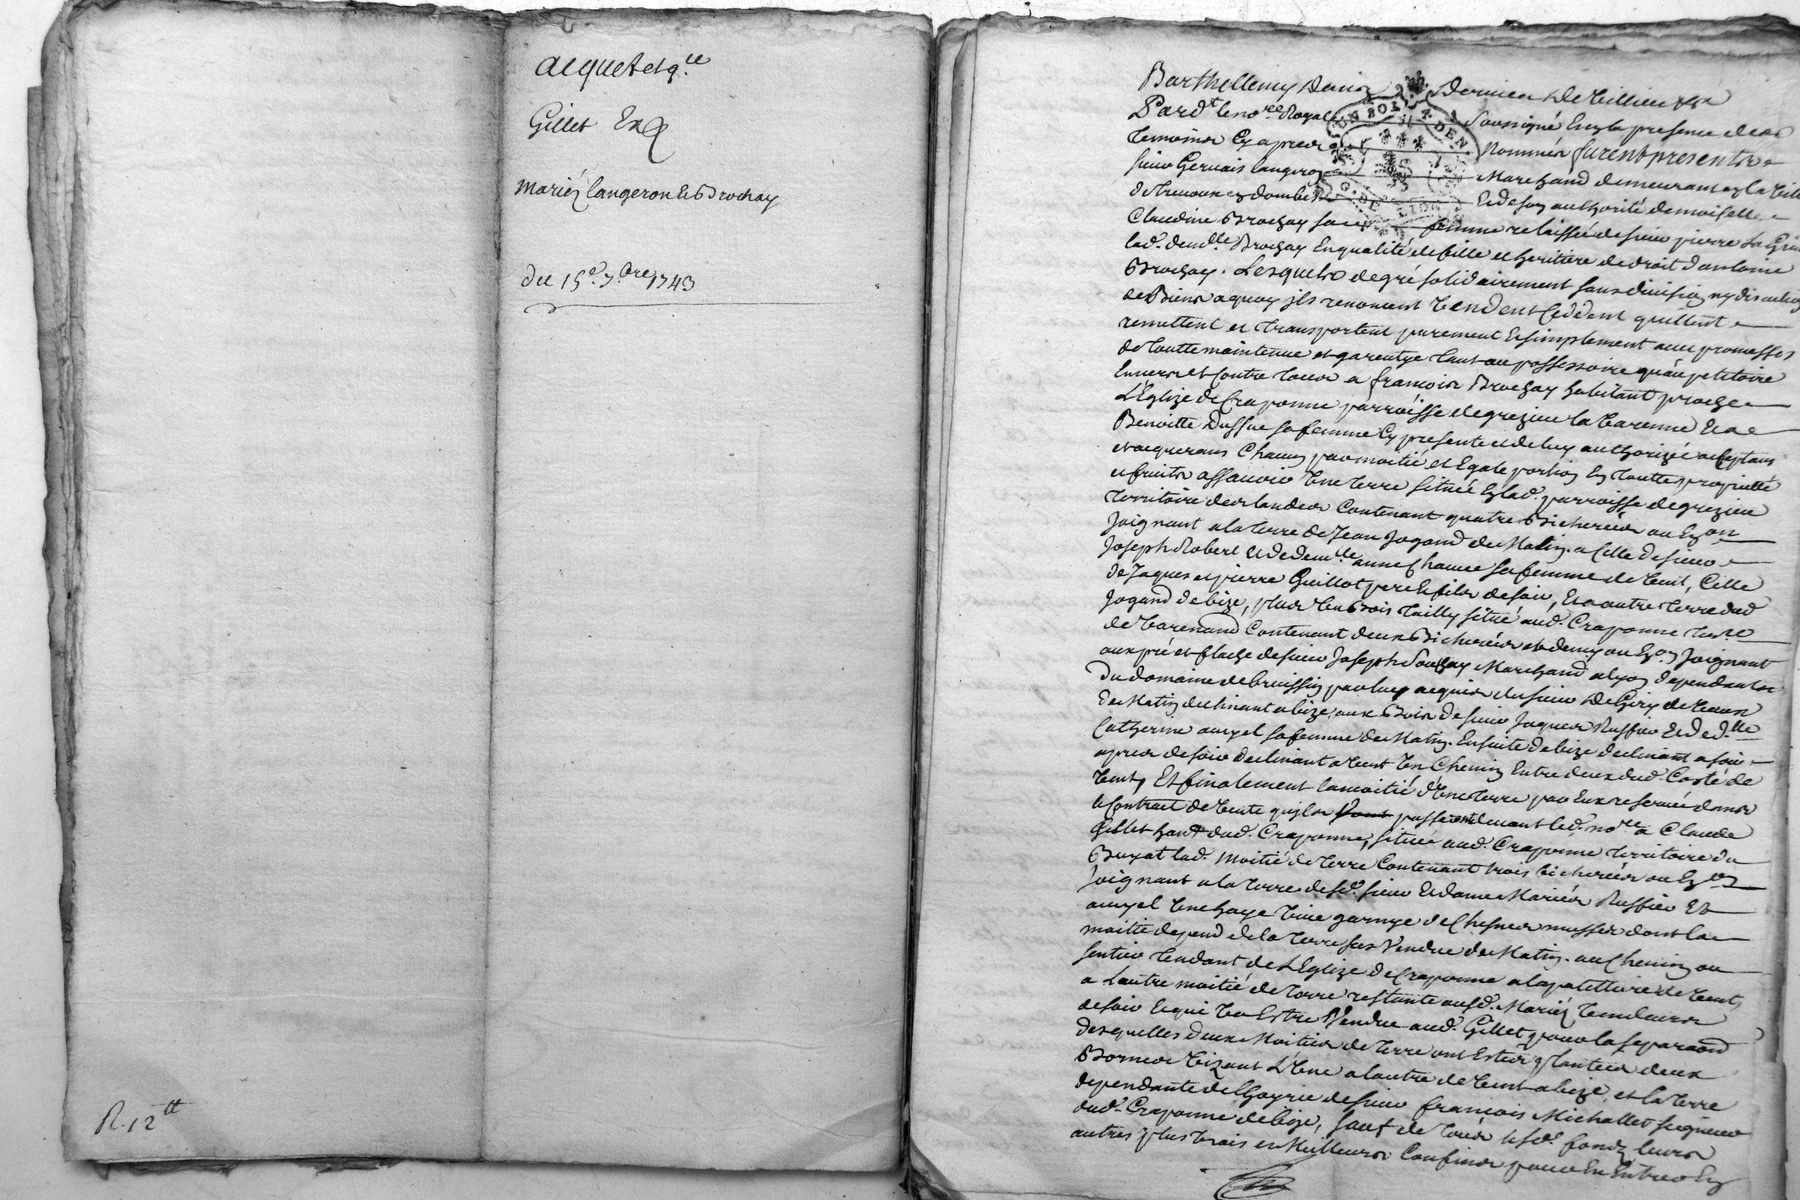 acquet et q.ce
Gillet
Mariéz langeron et Brochay
du 15.e 7.bre 1743
R. 12 tt
Barthellemy Denis Dernier de
Pard.t le no.re Royal soussigné En la presence des
temoins Cy apres nommés furent presents
sieur Gervais langeron Marchand demeurant en la ville
de trevoux en dombe et de son authorité demoiselle
Claudine Brochay sa femme relaissée de sieur pierre
lad. dem.lle Brochay En qualité de fille et heritiere de droit d'antoine
Brochay. Lesquels de gré solidairement sans division ny discution
de Biens a quoy jls renoncent vendent Ceddent quittent
remettent et transportent purement et simplement avec promesses
de toutte maintenue et garentye tant au possessoire qu'au petitoire
Envers et Contre tous a francois Brochay habitant proche
L'Eglize de Craponne parroisse de grezieu la Varenne et a
Benoitte sa femme Cy presente et de luy authorizée acceptans
et acquerans Chacun par moitié et Egale portion En toutte proprietté
et fruits assavoir Une terre située En lad. parroisse de grezieu
territoire des landes Contenant quatre Bicherées ou Env.on
Joignant a la terre de Jean Jogand de Matin. a Celle de sieur
Joseph Robert et de dem.lle anne Chance sa femme de Vent, Celle
de Jaques et pierre Guillot pere et fils de soir, Et a autre terre dud.
Jogand de bize, plus Un Bois tailly situé aud. Craponne terr.re
de Varenand Contenant deux Bicherées et demy ou Env. Joignant
aux pré et de sieur Joseph Souchay Marchand a lyon dependants
du domaine de bruissin par luy acquis du sieur De Giry de Vaux
de Matin declinant a bize, aux Bois de sieur Jaques Ruffier et de d.lle
Catherine aunyel sa femme de Matin. Ensuite de bize declinant a soir
apres de soir declinant a Vent Un Chemin Entre deux dud. Costé de
Vent, Et finalement la moitié d'Une terre par Eux reservée dans
le Contrat de Vente qu'jls ont passé devant led. no.re a Claude
Gillet hant dud. Craponne, située aud. Craponne territoire du
Buyat lad. moitié de terre Contenant trois bicherées ou Env.on
joignant a la terre desd. sieur et dame Mariés Ruffier Et
aunyel Une haye Vive garnye de Chesnes dont la
moitié depend de la terre sus Vendue de Matin. au Chemin ou
sentier tendant de L'Eglize de Craponne a la de Vent,
a L'autre moitié de terre restante ausd. Mariéz Vendeurs
de soir et qui Va Estre Vendue aud. Gillet pour la separaon
desquelles deux Moitiés de terre ont Estés plantées deux
Bornes Vizant L'Une a lautre de Vent a bize, et la terre
dependante de l'hoyrie de sieur francois Michallet seigneur
dud. Craponne de bize, sauf de tous lesd. fonds leurs
autres plus Vrais et Meilleurs Confins pour En